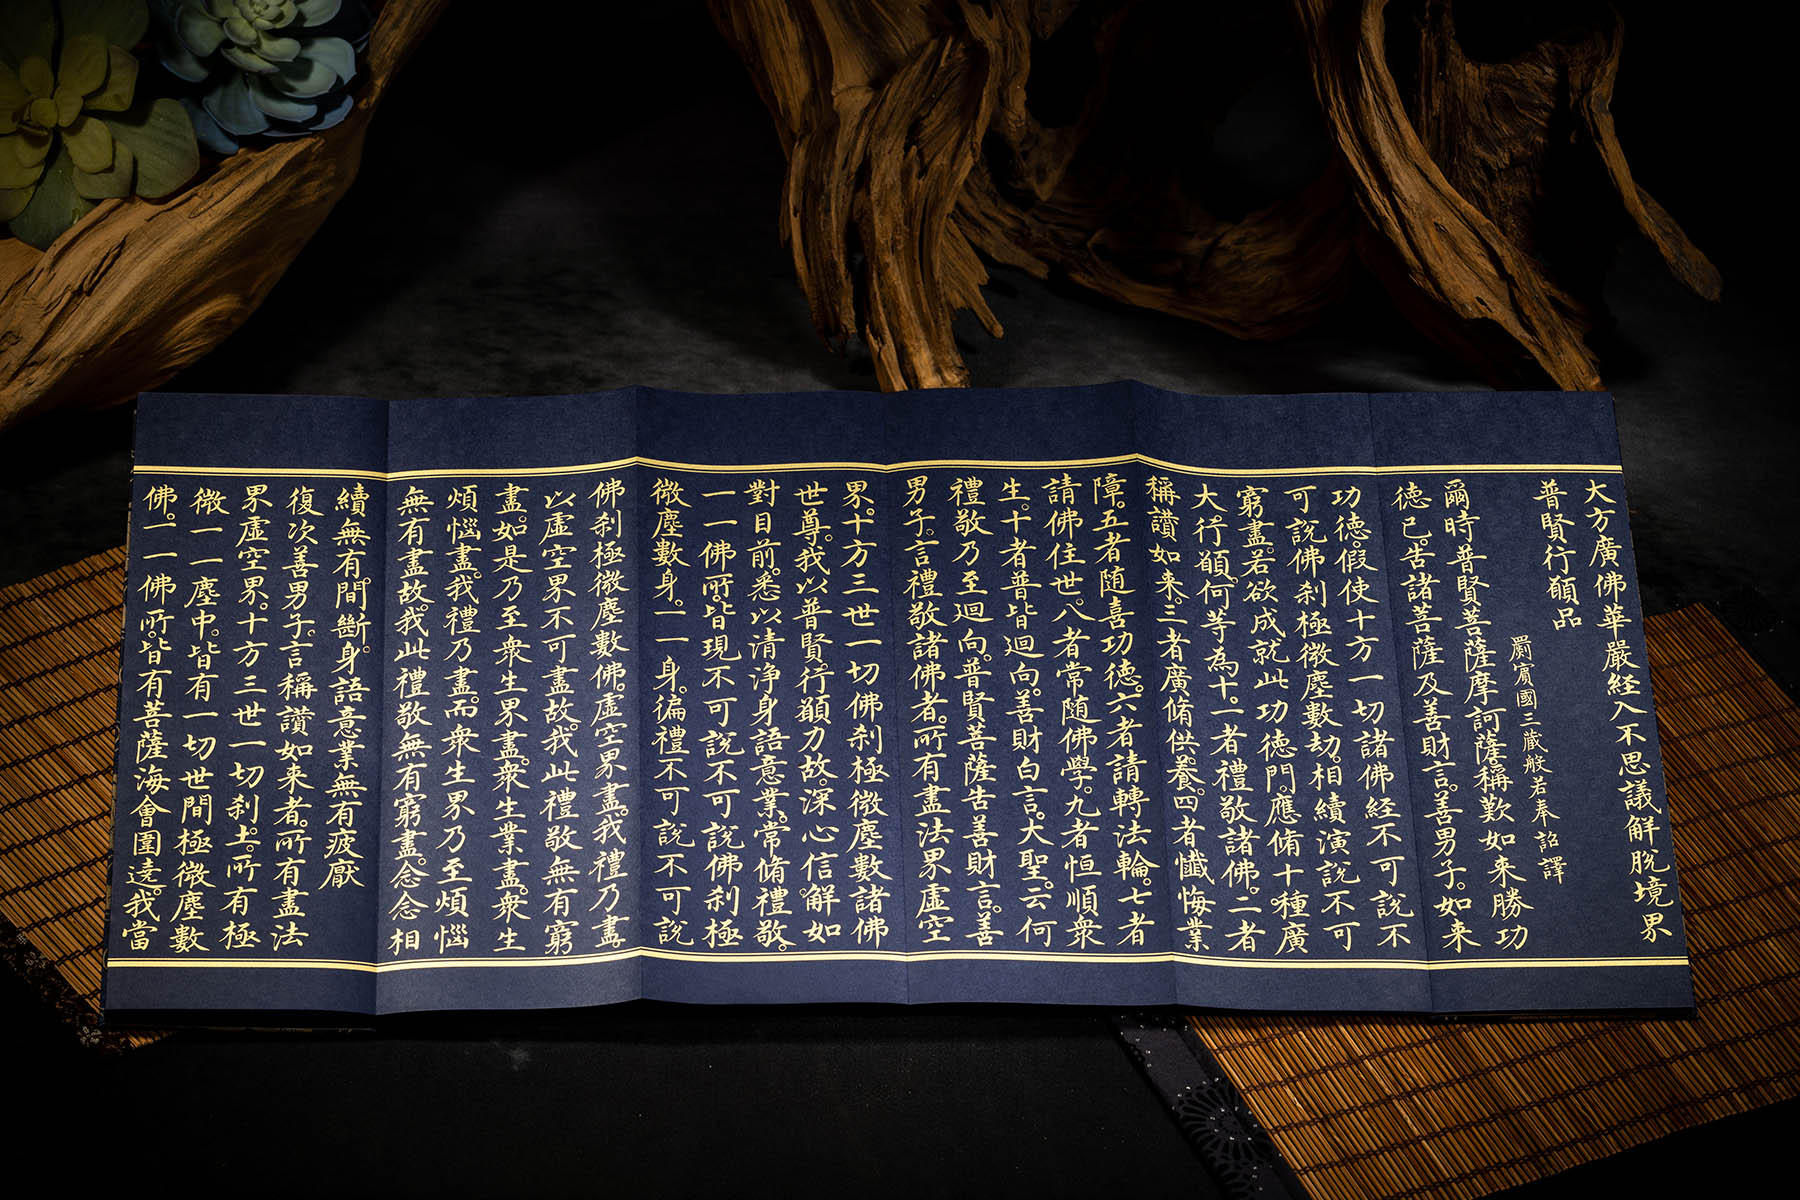 大方廣佛華嚴経入不思議解脫境界
普賢行願品
罽賓國三蔵般若奉詔譯
爾時普賢菩薩摩訶薩。稱歎如来勝功
徳已。告諸菩薩及善財言。善男子。如来
功徳。假使十方一切諸佛経不可說不
可說佛刹極微塵數劫。相續演說不可
窮盡。若欲成就此功徳門。應脩十種廣
大行願。何等為十。一者禮敬諸佛。二者
稱讃如来。三者廣脩供養。四者懺悔業
障。五者随喜功徳。六者請轉法輪。七者
請佛住世。八者常随佛學。九者恒順衆
生。十者普皆迴向。善財白言。大聖。云何
禮敬乃至迴向。普賢菩薩告善財言。善
男子。言禮敬諸佛者。所有盡法界虚空
界。十方三世一切佛刹極微塵數諸佛
世尊。我以普賢行願力故。深心信解如
對目前。悉以清浄身語意業。常脩禮敬。
一一佛所。皆現不可說不可說佛刹極
微塵數身。一一身。徧禮不可說不可說
佛刹極微塵數佛。虚空界盡。我禮乃盡。
以虚空界不可盡故。我此禮敬無有窮
盡。如是乃至衆生界盡。衆生業盡。衆生
煩惱盡。我禮乃盡。而衆生界乃至煩惱
無有盡故。我此禮敬無有窮盡。念念相
續無有間斷。身語意業無有疲厭
復次善男子。言稱讃如来者。所有盡法
界虚空界。十方三世一切刹土。所有極
微一一塵中。皆有一切世間極微塵數
佛。一一佛所。皆有菩薩海會圍遶。我當